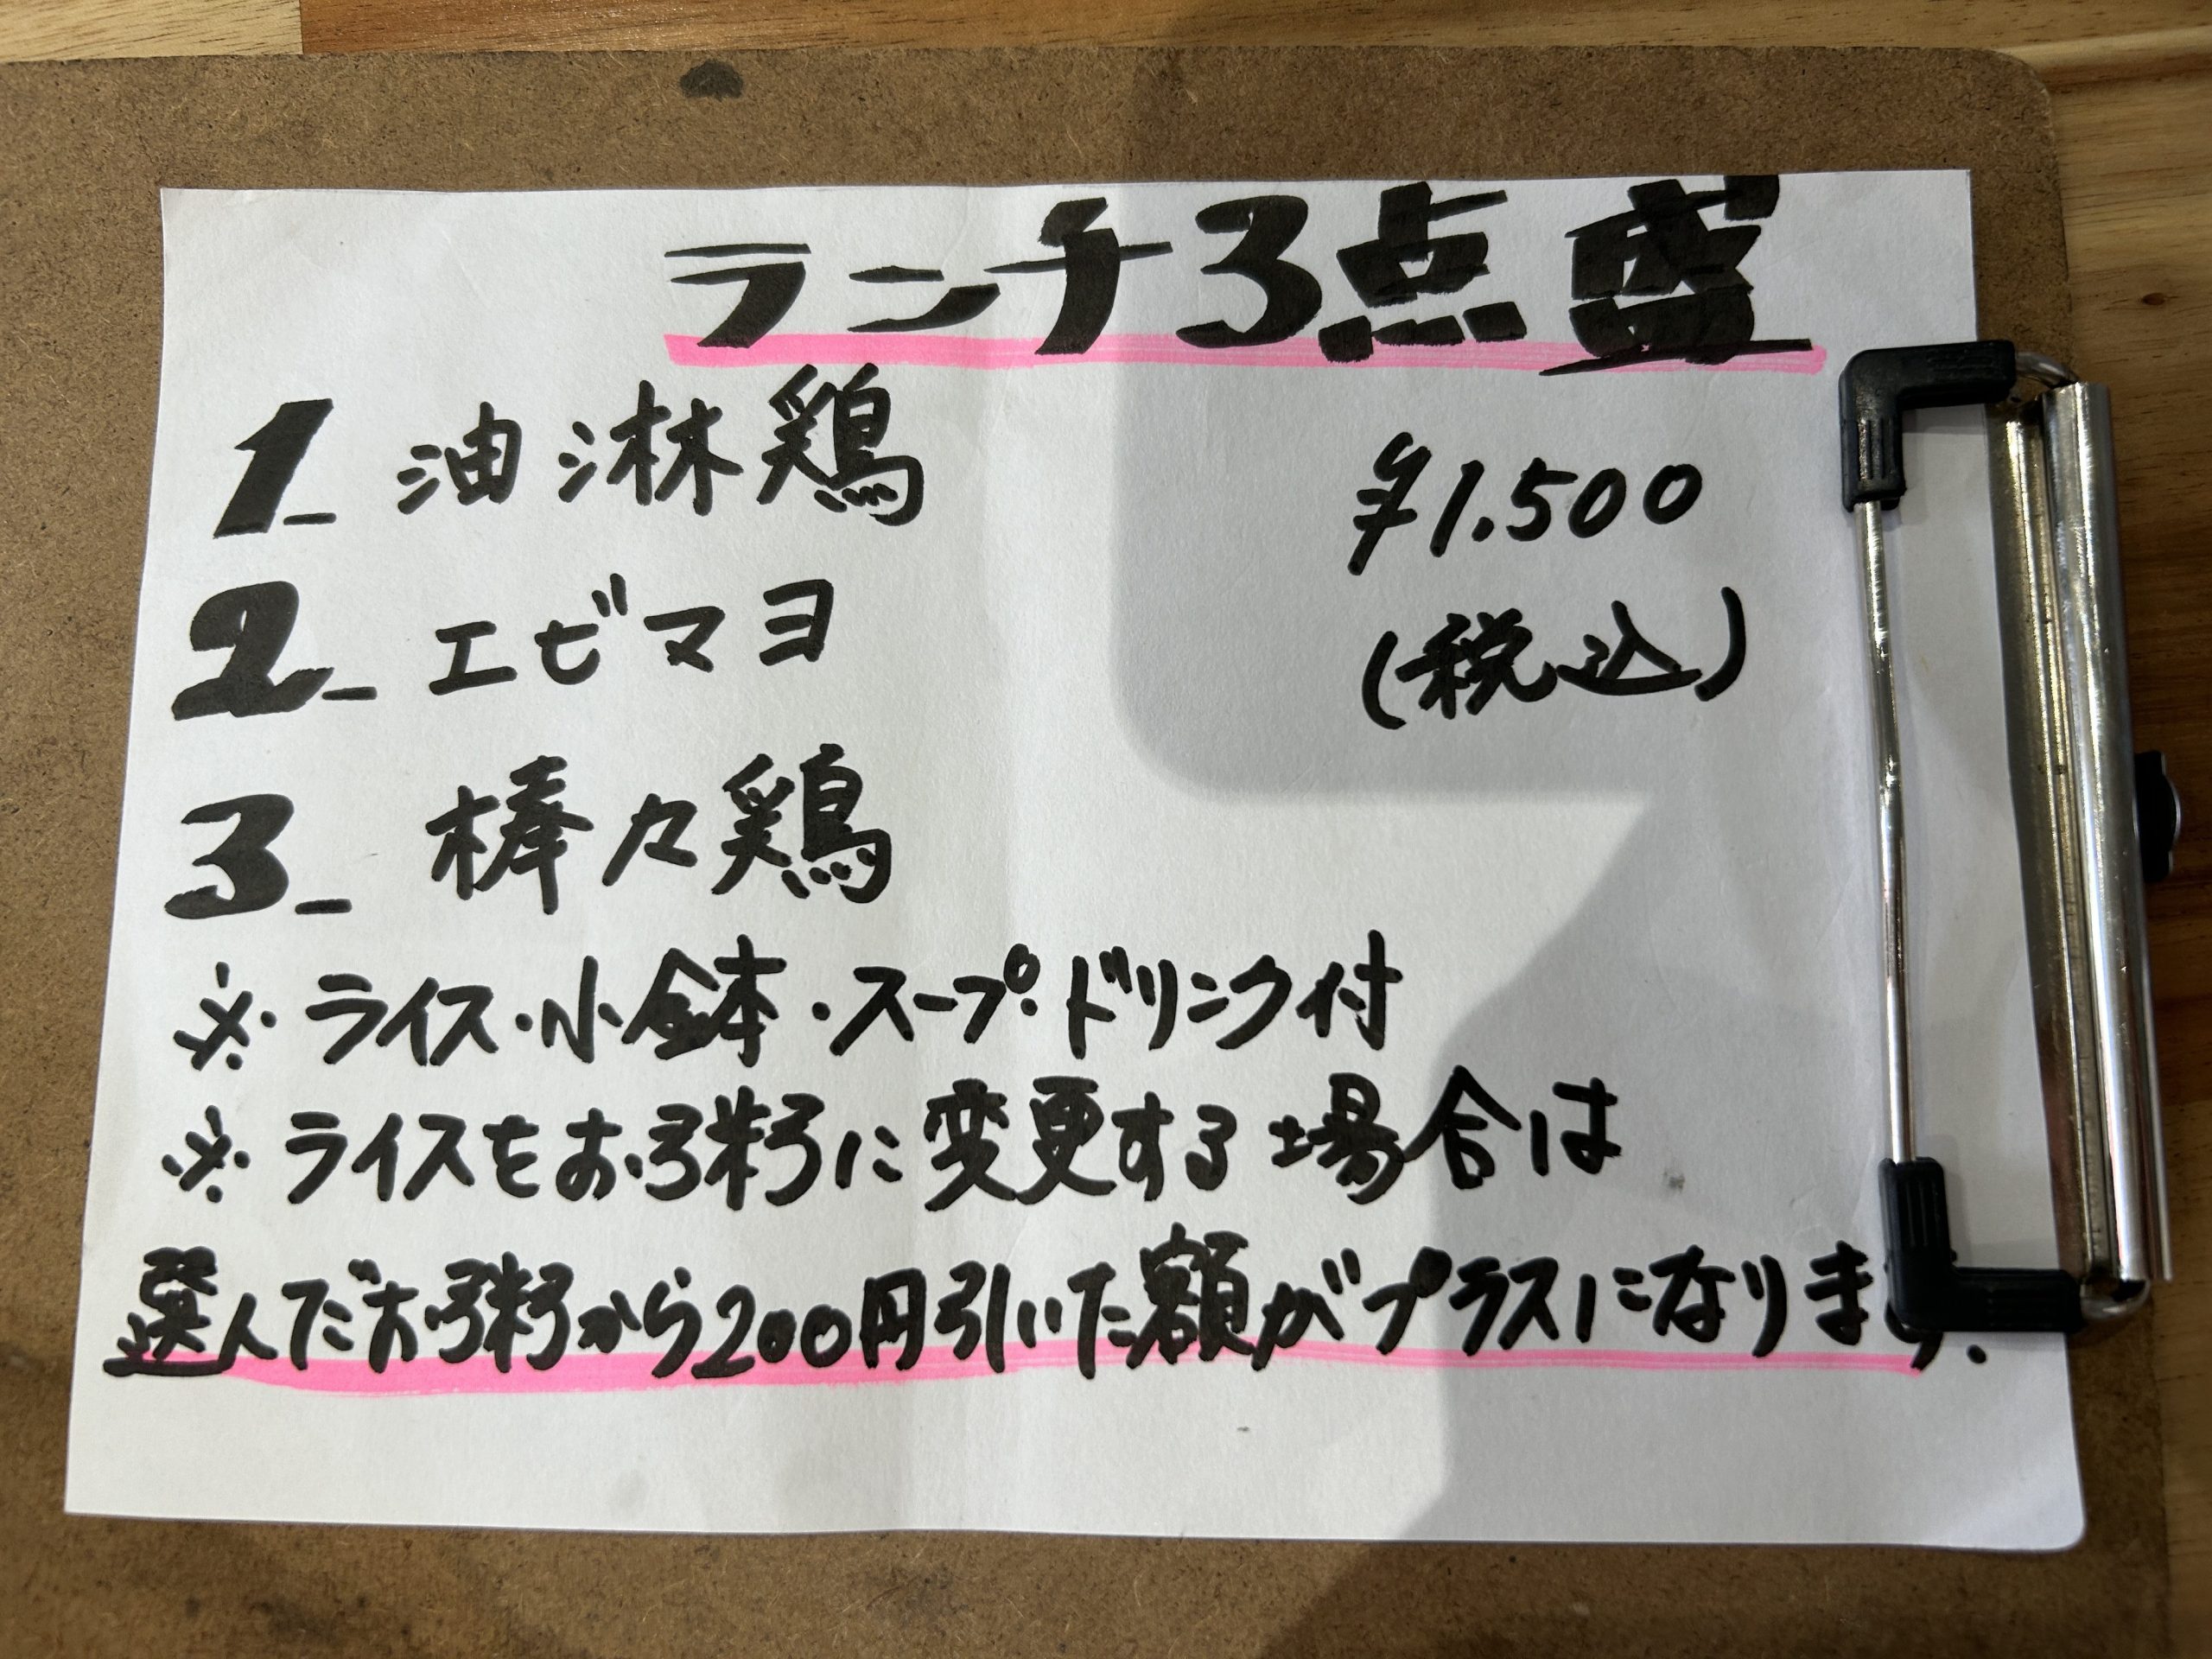 ランチ3点盛
1_ 油淋鶏
¥1.500
2_ エビマヨ
(税込)
3_ 棒々鶏
※ライス・小鉢・スープ・ドリンク付
※ライスをお粥に変更する場合は
選んだお粥から200円引いた額がプラスになります.